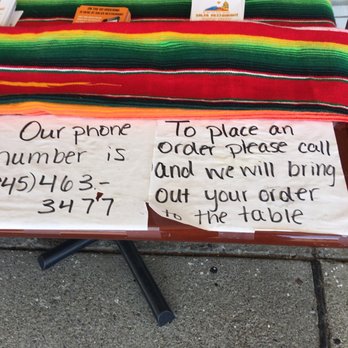 Our phone
number is
845)463-
3477
To place an
order please call
and we will bring
out your order
to the table